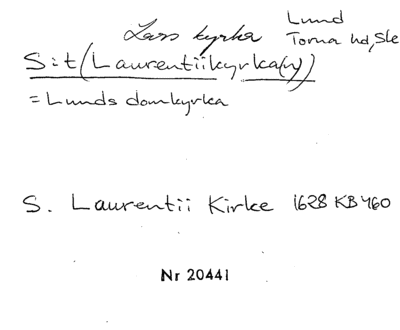 Lund
Lars kyrka Torna hd, Ske
S:t (Laurentiikyrka(n))
= Lunds domkyrka
S. Laurentii Kirke 1628 KB 460
Nr 20441